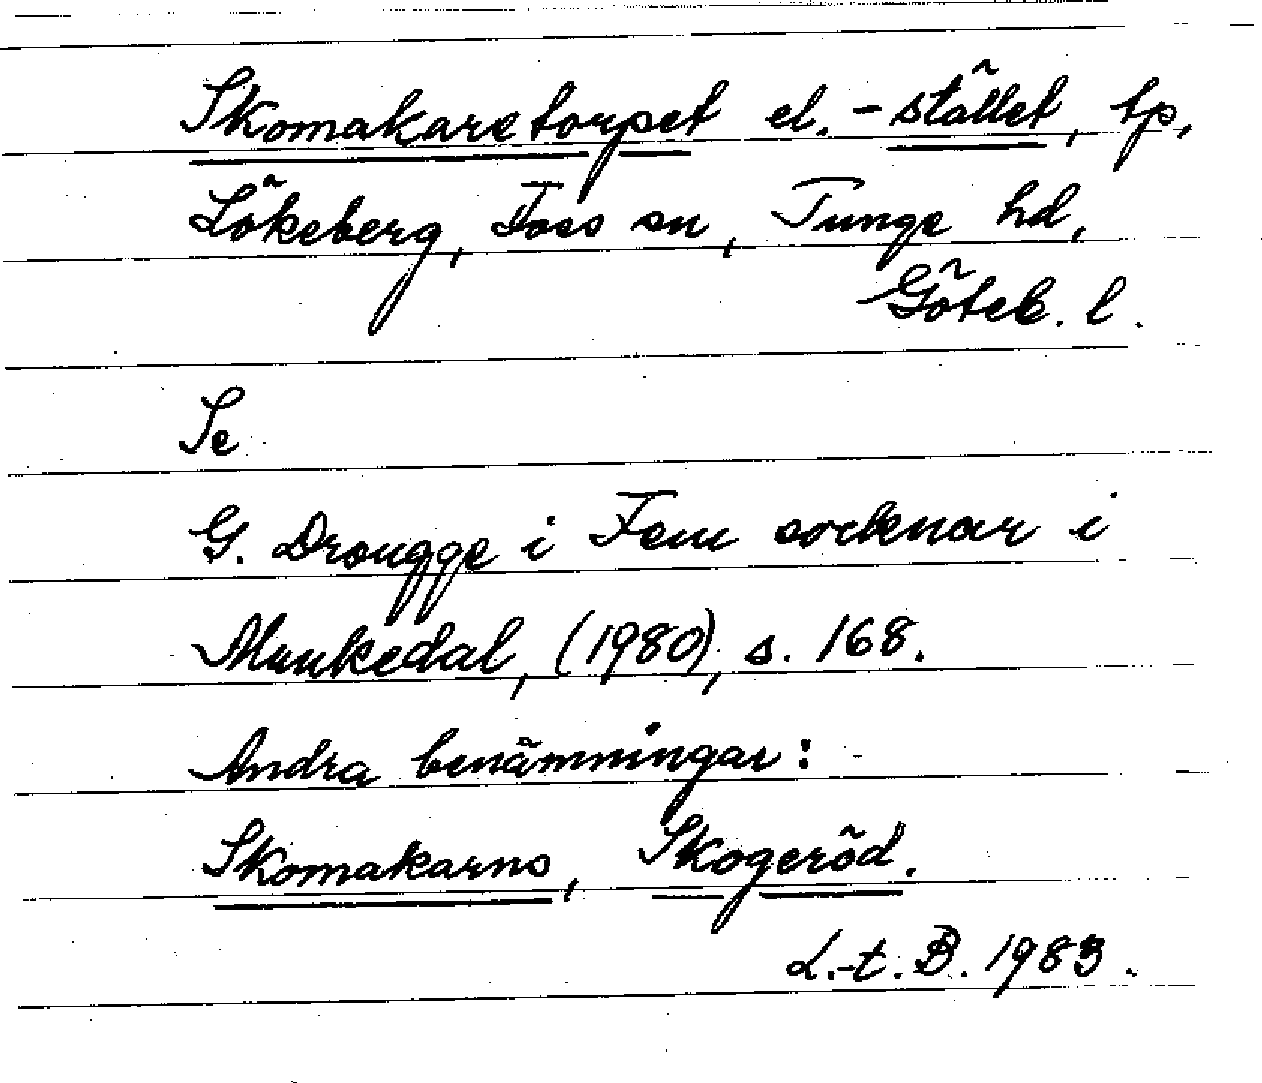 Skomakaretorpet el. -stället, tp,
Lökeberg, Foss sn, Tunge hd,
Göteb. l.
Se
G. Drougge i Fem socknar i
Munkedal, (1980), s. 168.
Andra benämningar:
Skomakarns, Skogeröd.
L.-t. B. 1983.